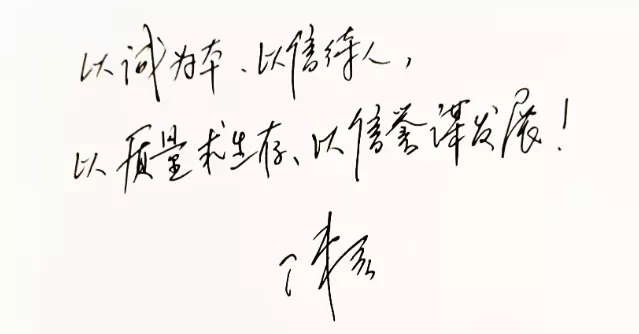 以诚为本、以信待人,
以质量求生存、以信誉谋发展!